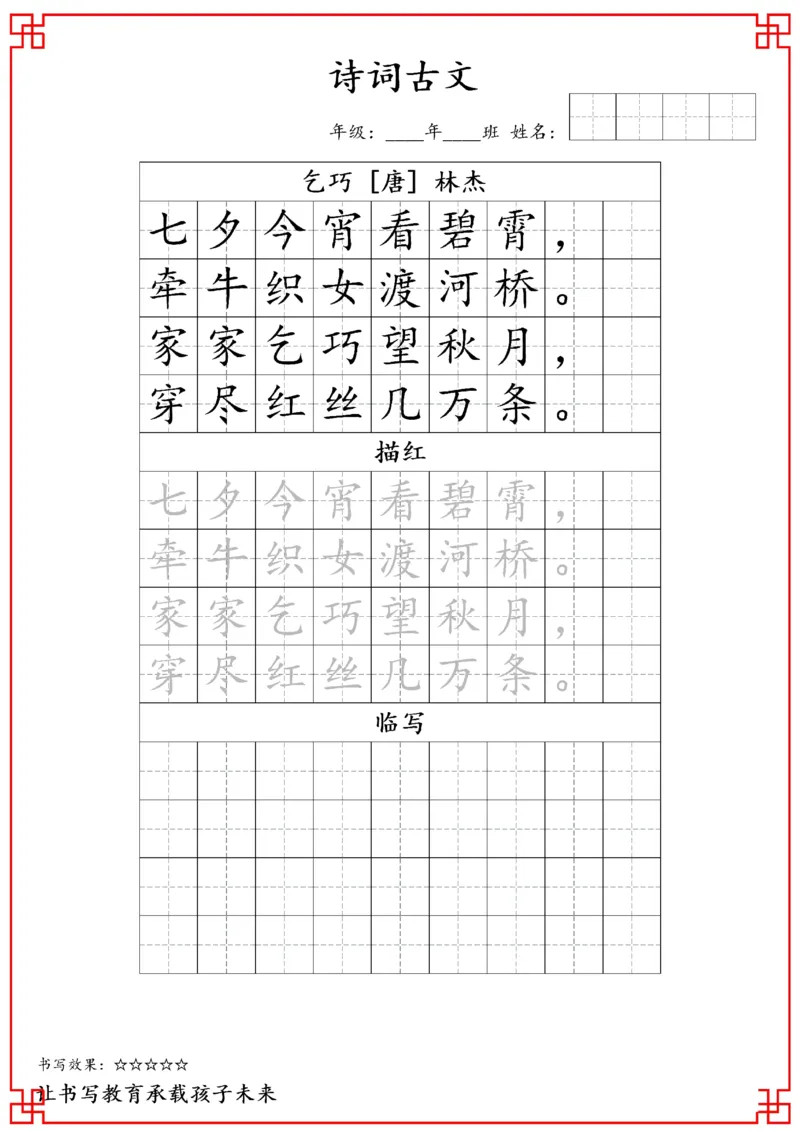 诗词古文
年级：____年____班 姓名：
乞巧 [唐] 林杰
七夕今宵看碧霄，
牵牛织女渡河桥。
家家乞巧望秋月，
穿尽红丝几万条。
描红
七夕今宵看碧霄，
牵牛织女渡河桥。
家家乞巧望秋月，
穿尽红丝几万条。
临写
书写效果：☆☆☆☆☆
让书写教育承载孩子未来